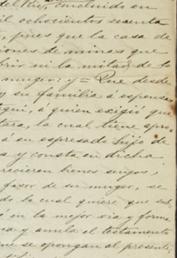 del Rey, concluido en
mil ochocientos sesenta
, pues que la casa de
ciones de minas que
en la mitad de lo
muger: y = Que desde
y su familia á espensas
aqui, á quien exigió que
tura, la cual tiene apro
á su espresado hijo de
s y consta en dicha
recieron bienes suyos,
favor de su muger, se
do lo cual quiere que sea
á en la mejor via y forma
ca y anula el testamento
ue se opongan al presente